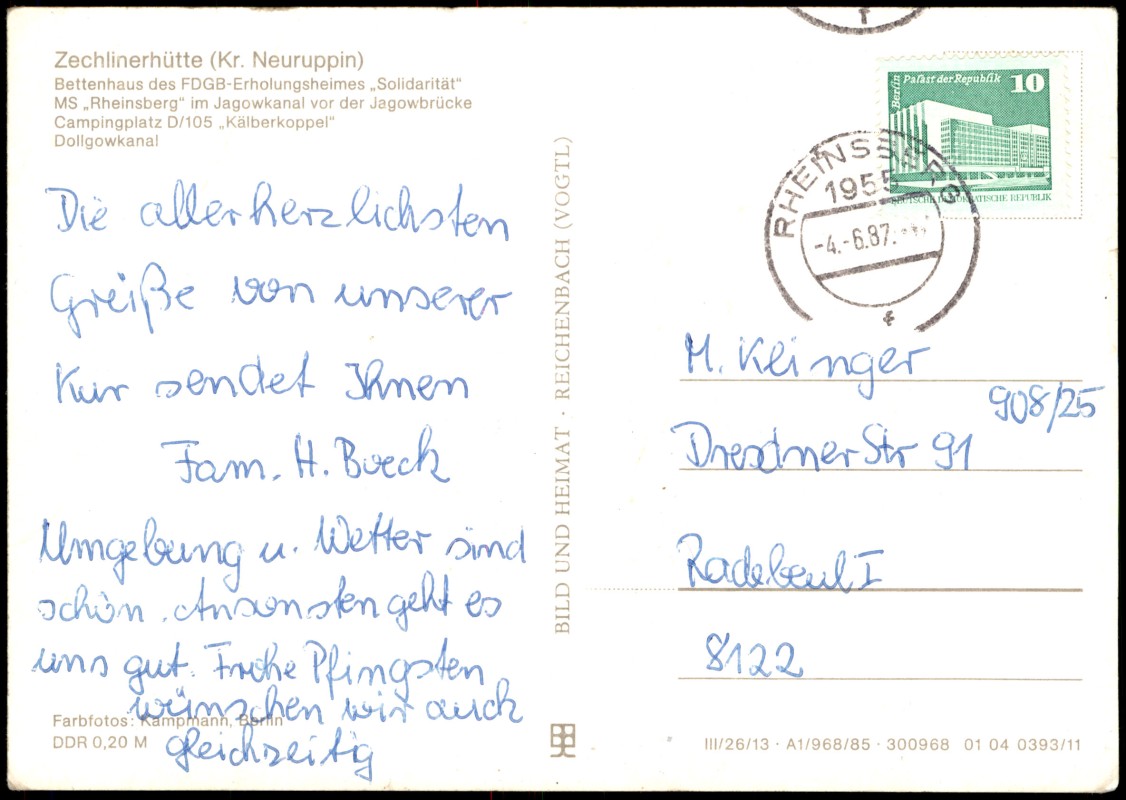 Zechlinerhütte (Kr. Neuruppin)
Bettenhaus des FDGB-Erholungsheimes „Solidarität“
MS „Rheinsberg“ im Jagowkanal vor der Jagowbrücke
Campingplatz D/105 „Kälberkoppel“
Dollgowkanal
Die allerherzlichsten
Grüße von unserer
Kur sendet Ihnen
Fam. H. Boeck
Umgebung u. Wetter sind
schön. Ansonsten geht es
uns gut. Frohe Pfingsten
wünschen wir auch
gleichzeitig
Farbfotos: Kampmann, Berlin
DDR 0,20 M
BILD UND HEIMAT · REICHENBACH (VOGTL)
Berlin Palast der Republik 10
DEUTSCHE DEMOKRATISCHE REPUBLIK
RHEINSBERG
1955
-4.-6.87.
M. Klinger
908/25
Dresdner Str 91
Radebeul I
8122
III/26/13 · A1/968/85 · 300968 01 04 0393/11